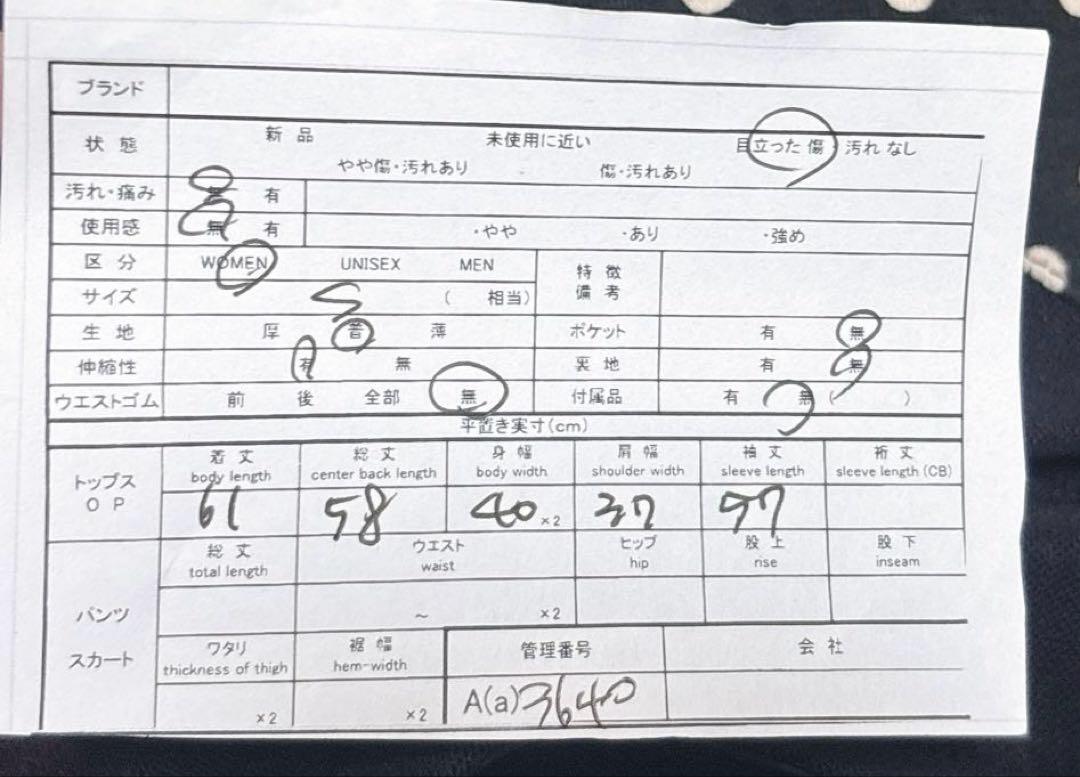 ブランド
状態 新品 未使用に近い 目立った傷・汚れなし
やや傷・汚れあり 傷・汚れあり
汚れ・痛み 無 有
使用感 無 有 ・やや ・あり ・強め
区分 WOMEN UNISEX MEN 特徴
備考
サイズ S ( 相当)
生地 厚 普 薄 ポケット 有 無
伸縮性 有 無 裏地 有 無
ウエストゴム 前 後 全部 無 付属品 有 ( 無 ( )
平置き実寸(cm)
トップス
OP
着丈 総丈 身幅 肩幅 袖丈 裄丈
body length center back length body width shoulder width sleeve length sleeve length (CB)
61 58 40 ×2 37 57
総丈 ウエスト ヒップ 股上 股下
total length waist hip rise inseam
パンツ ～ ×2
スカート
ワタリ 裾幅 管理番号 会社
thickness of thigh hem-width
×2 ×2 A(a)3640